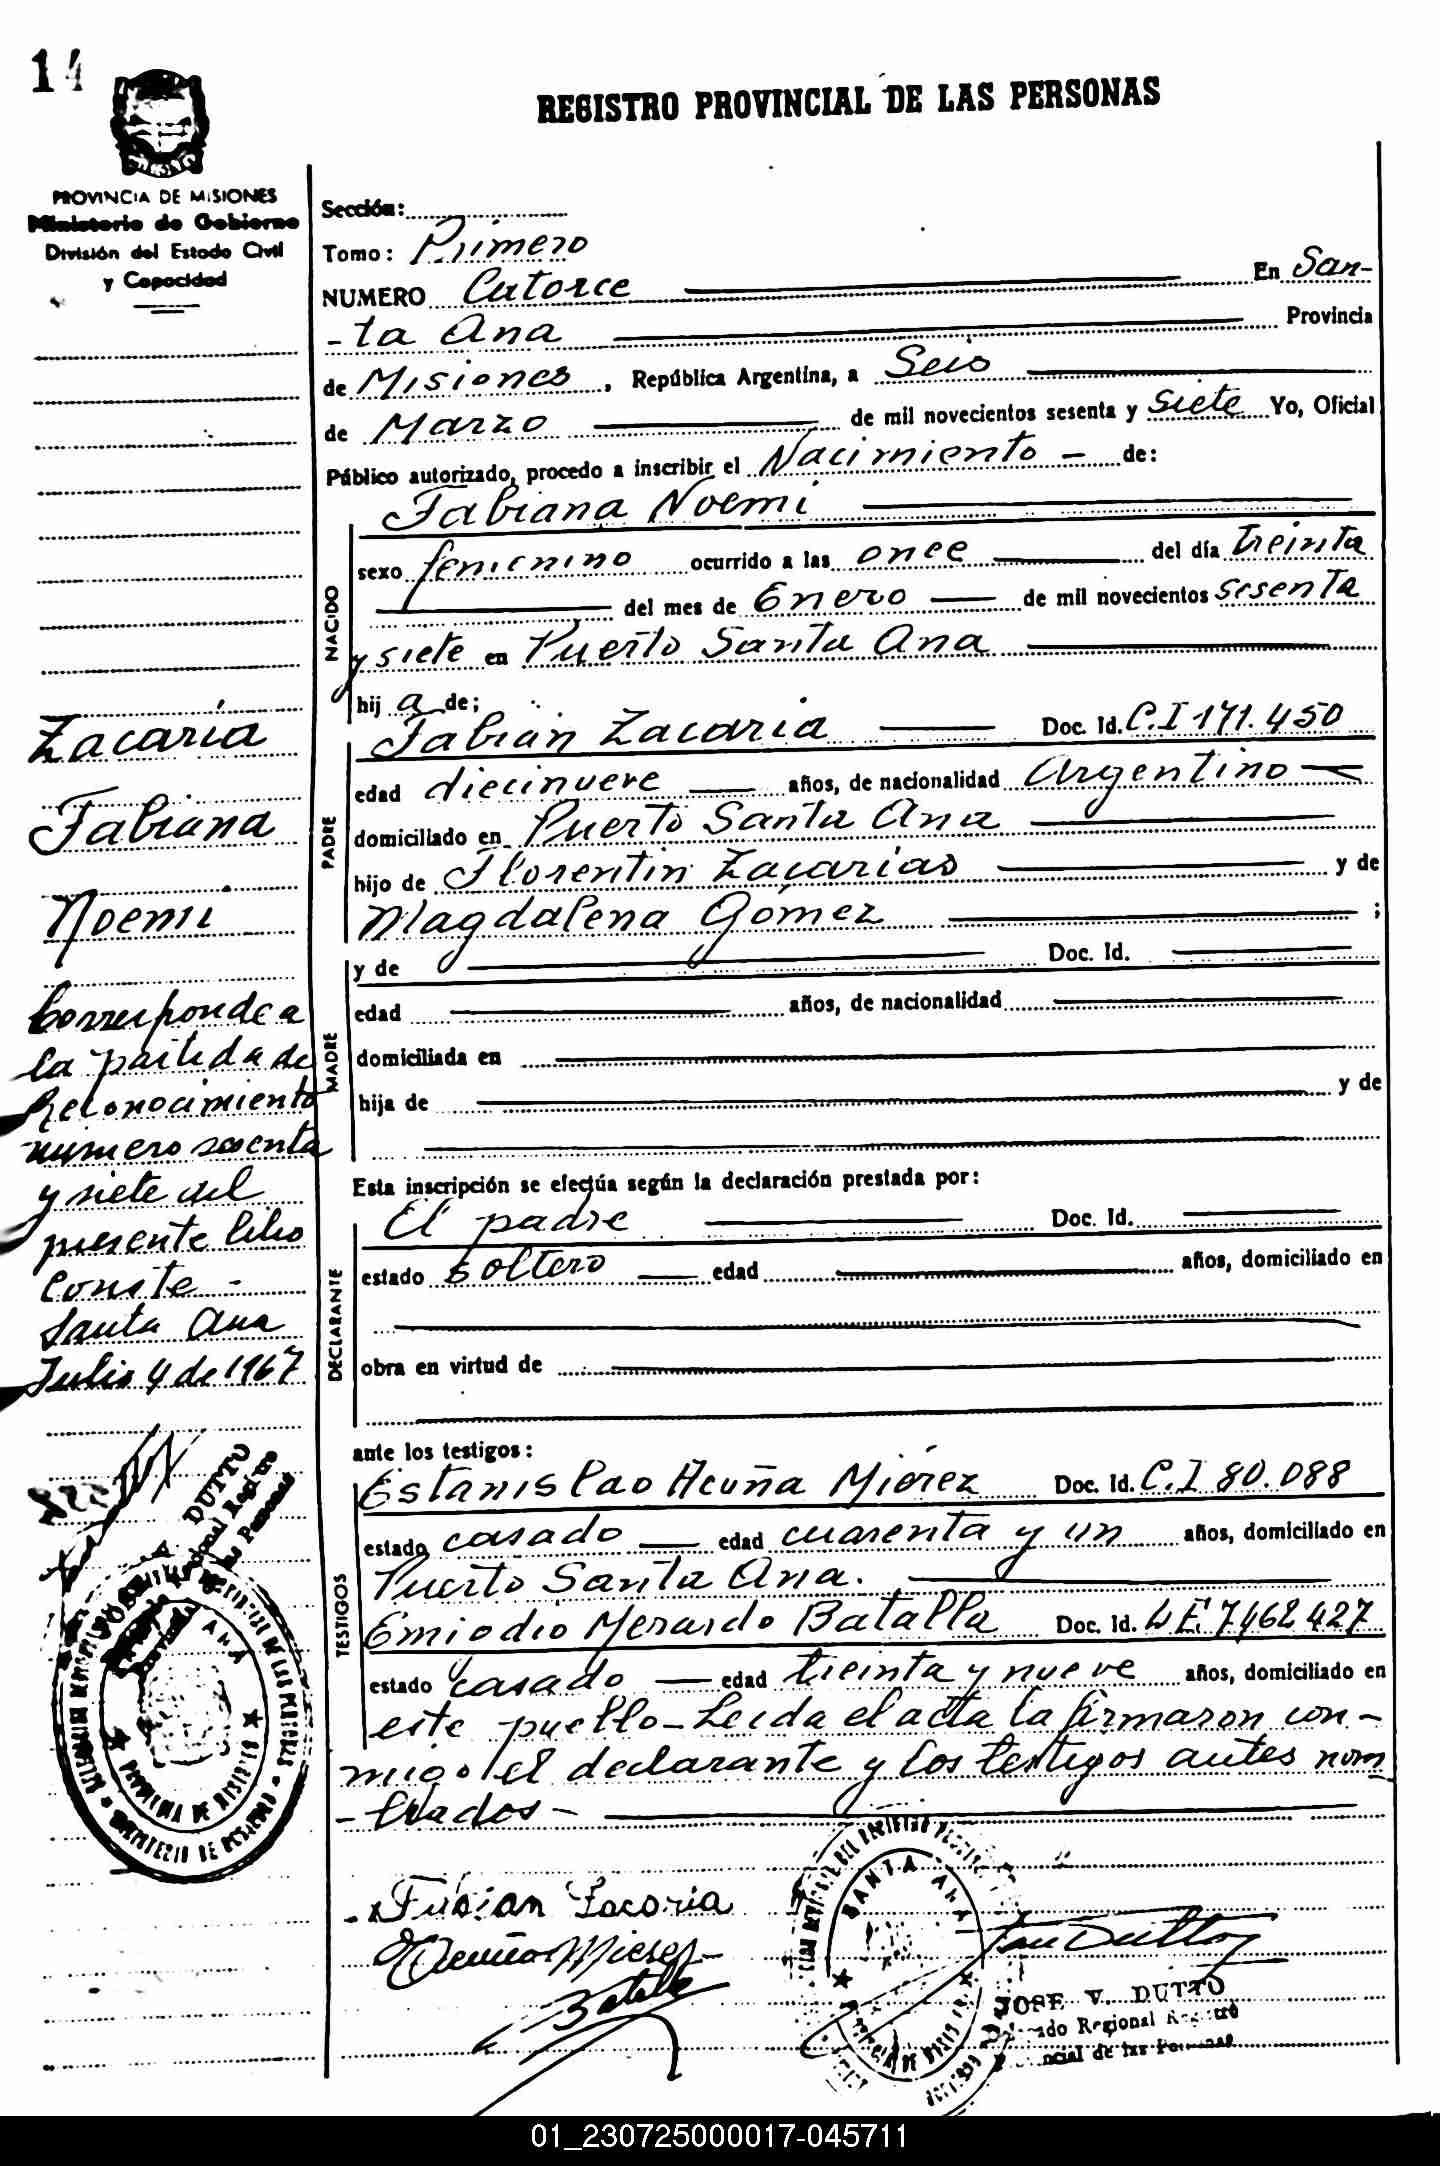 14
REGISTRO PROVINCIAL DE LAS PERSONAS
PROVINCIA DE MISIONES
Ministerio de Gobierno
División del Estado Civil
y Capacidad
Sección:
Tomo: Primero
NUMERO Catorce En San-
-ta Ana Provincia
de Misiones, República Argentina, a Seis
de Marzo de mil novecientos sesenta y siete Yo, Oficial
Público autorizado, procedo a inscribir el Nacimiento - de:
Fabiana Noemi
NACIDO
sexo femenino ocurrido a las once del día treinta
del mes de Enero de mil novecientos sesenta
y siete en Puerto Santa Ana
hij a de;
PADRE
Fabián Zacaria Doc. Id. C.I 171.450
edad diecinueve años, de nacionalidad Argentino
domiciliado en Puerto Santa Ana
hijo de Florentin Zacarias y de
Magdalena Gómez ;
MADRE
y de Doc. Id.
edad años, de nacionalidad
domiciliada en
hija de y de
Esta inscripción se efectúa según la declaración prestada por:
DECLARANTE
El padre Doc. Id.
estado soltero edad años, domiciliado en
obra en virtud de
ante los testigos:
TESTIGOS
Estanislao Acuña Miérez Doc. Id. C.I 80.088
estado casado edad cuarenta y un años, domiciliado en
Puerto Santa Ana.
Emiodio Merardo Batalla Doc. Id. LE 7462427
estado casado edad treinta y nueve años, domiciliado en
este pueblo - Leida el acta la firmaron con-
migo el declarante y los testigos antes nom
-brados-
Zacaría
Fabiana
Noemi
Corresponde a
la partida de
Reconocimiento
número sesenta
y siete del
presente libro
Conste -
Santa Ana
Julio 4 de 1967
DUTTO
Regional Registro
las Personas
SANTA ANA
PROVINCIA DE MISIONES
MINISTERIO DE GOBIERNO
Fabian Sacoria
Acuña Mieres
Batalla
SANTA ANA
Jose Dutto
JOSE V. DUTTO
Regional Registro
de las Personas
01_230725000017-045711